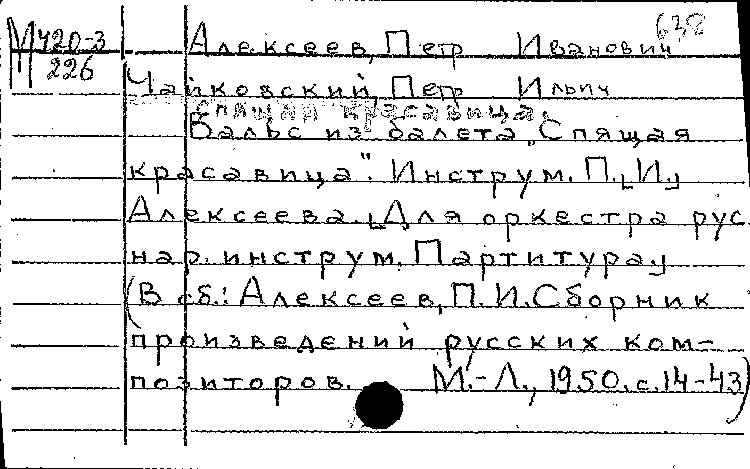 М 420-3 Алексеев, Петр Иванович 638
226
Чайковский, Петр Ильич
Спящая красавица.
Вальс из балета „Спящая
красавица". Инструм. П.[И.]
Алексеева. [Для оркестра рус.
нар. инструм. Партитура]
(В сб.: Алексеев, П.И. Сборник
произведений русских ком-
позиторов. М.-Л., 1950. с. 14-43)